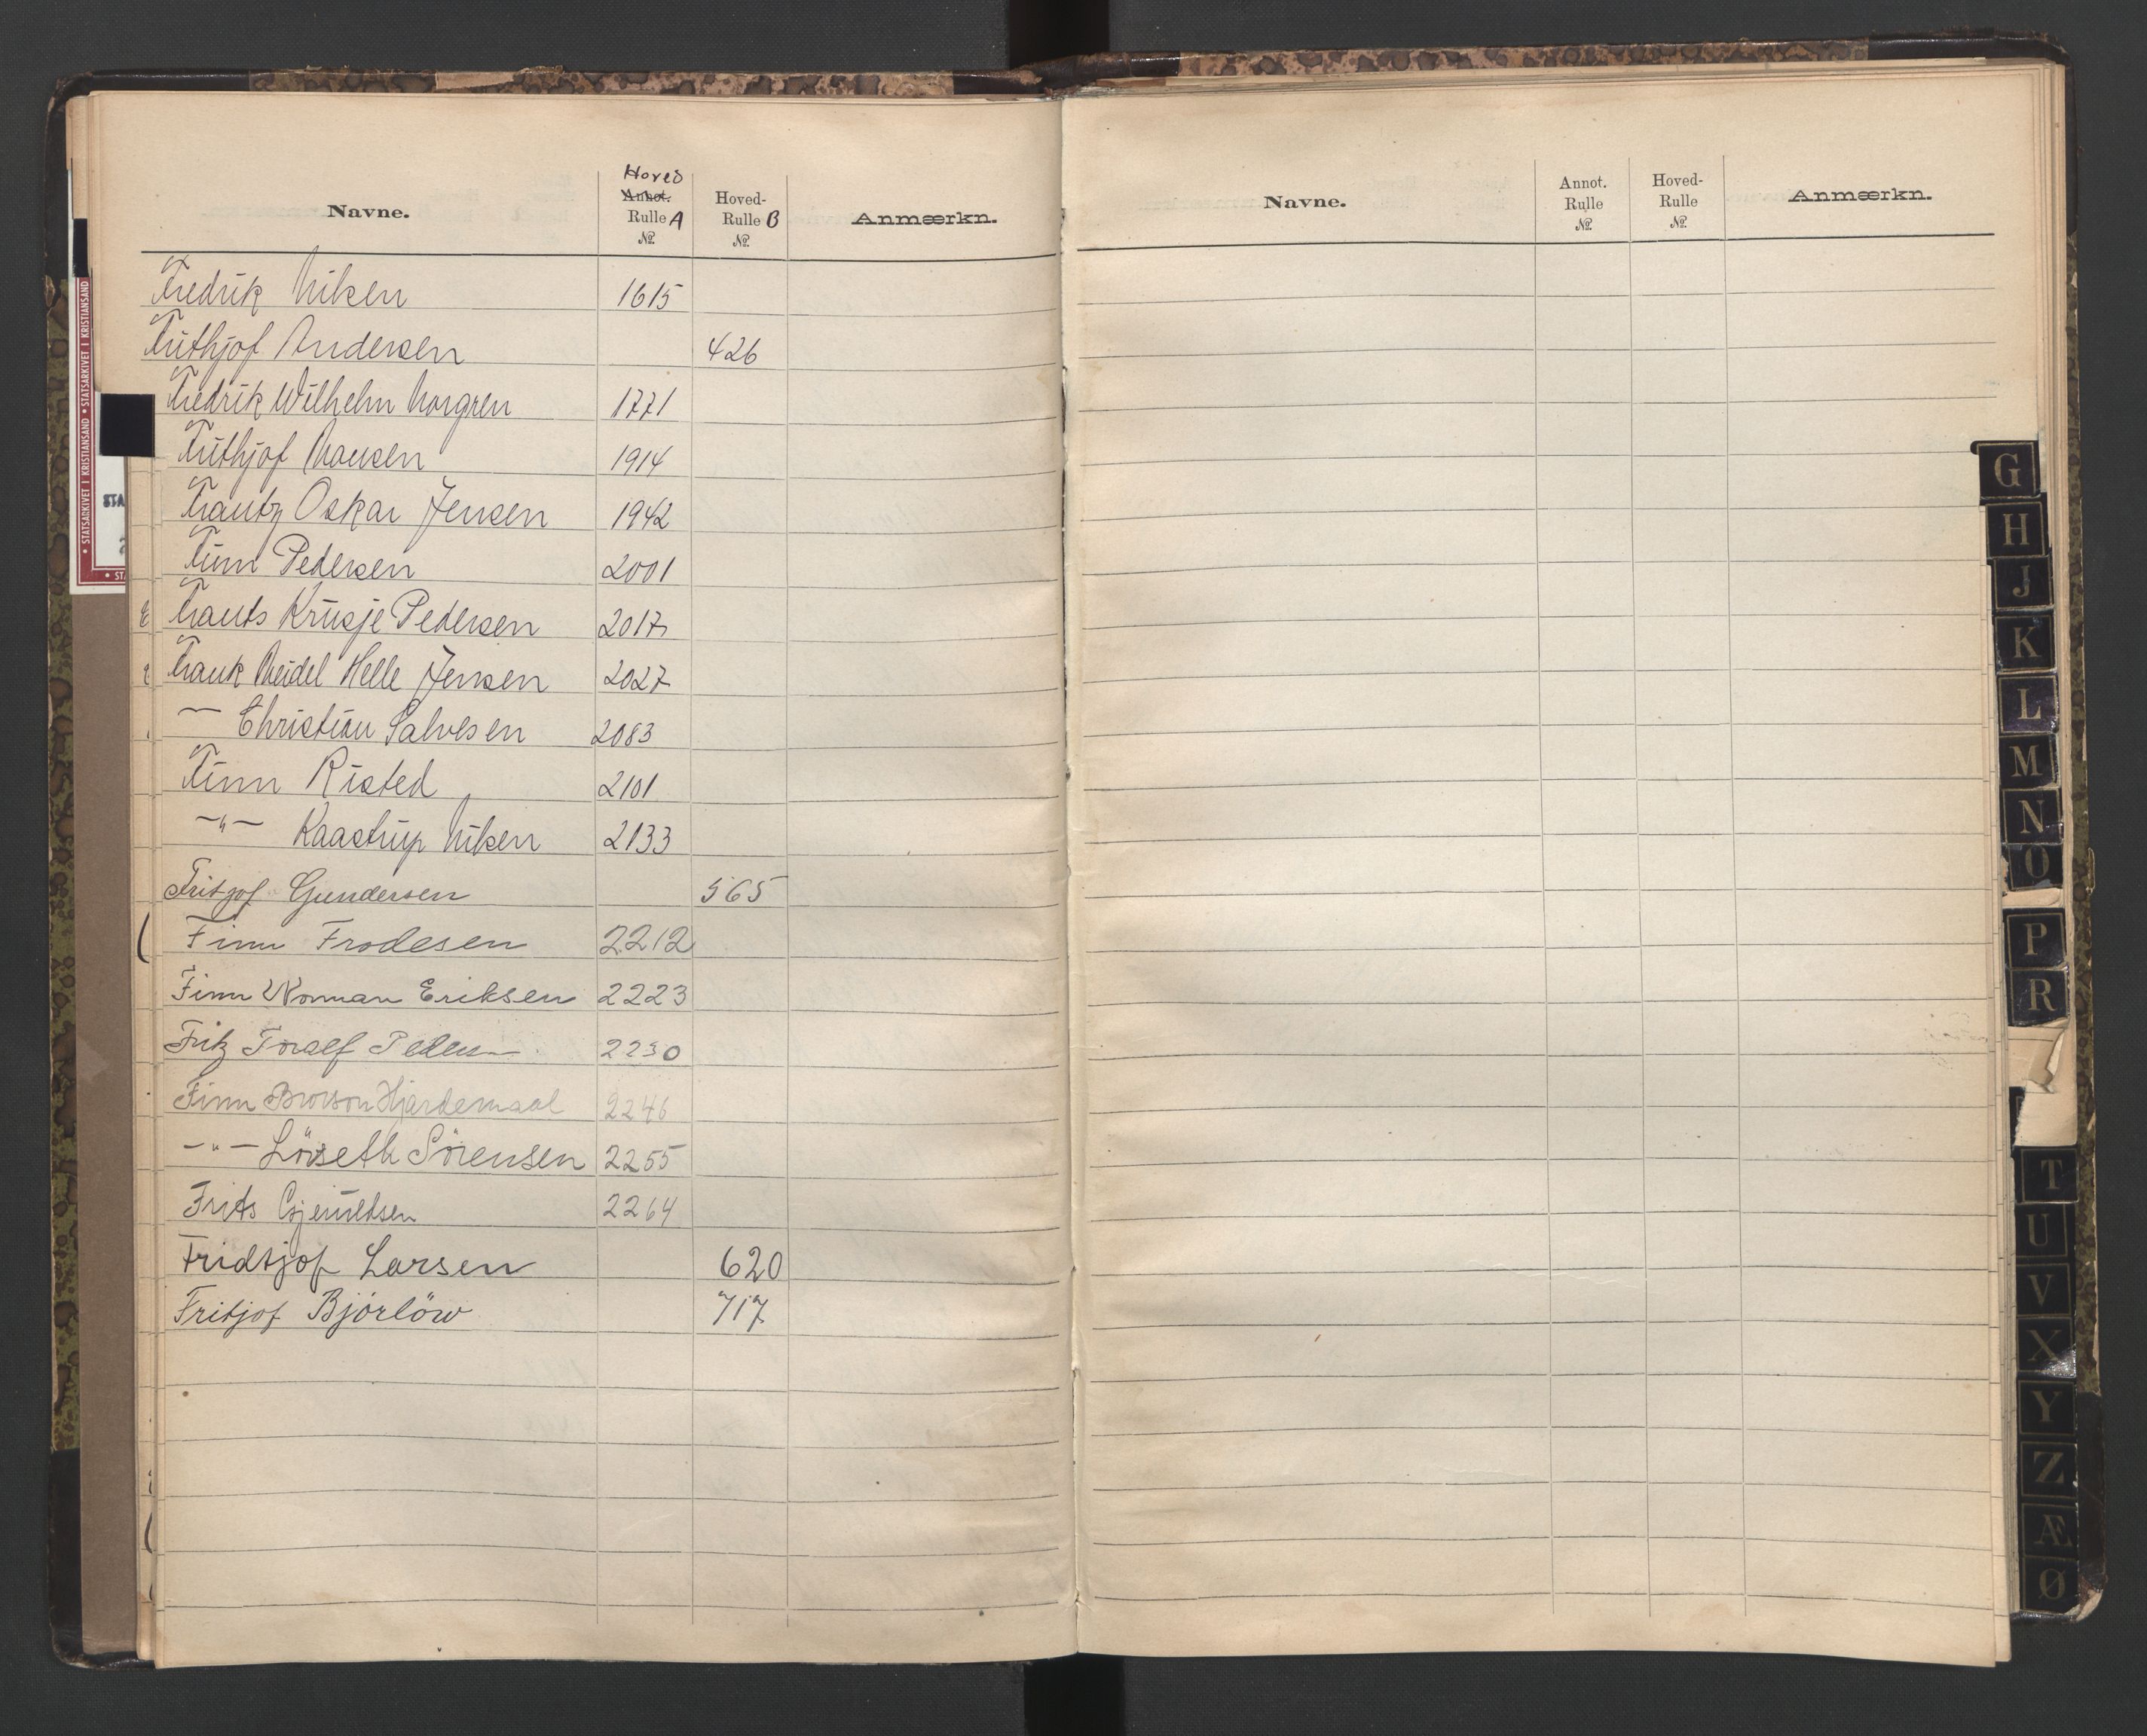 Hoved
Navne. Annot. Rulle A No. Hoved-Rulle B No. Anmærkn.
Fredrik Nilsen 1615
Frithjof Andersen 426
Fredrik Wilhelm Norgren 1771
Frithjof Hansen 1914
Frantz Oskar Jensen 1942
Finn Pedersen 2001
Frants Krusje Pedersen 2017
Frank Meidel Helle Jensen 2027
— Christian Salvesen 2083
Finn Risted 2101
—"— Kaastrup Nilsen 2133
Fritjof Gundersen 565
Finn Frodesen 2212
Finn Norman Eriksen 2223
Fritz Toralf Pedersen 2230
Finn Brorson Hjardemaal 2246
—"— Lövseth Sörensen 2255
Frits Gjerulsen 2264
Fridtjof Larsen 620
Fritjof Björlöw 717
Navne. Annot. Rulle No. Hoved-Rulle No. Anmærkn.
G
H
J
K
L
M
N
O
P
R
T
U
V
X
Y
Z
Æ
Ø
• STATSARKIVET I KRISTIANSAND • STATSARKIVET I KRISTIANSAND
STA
• STA